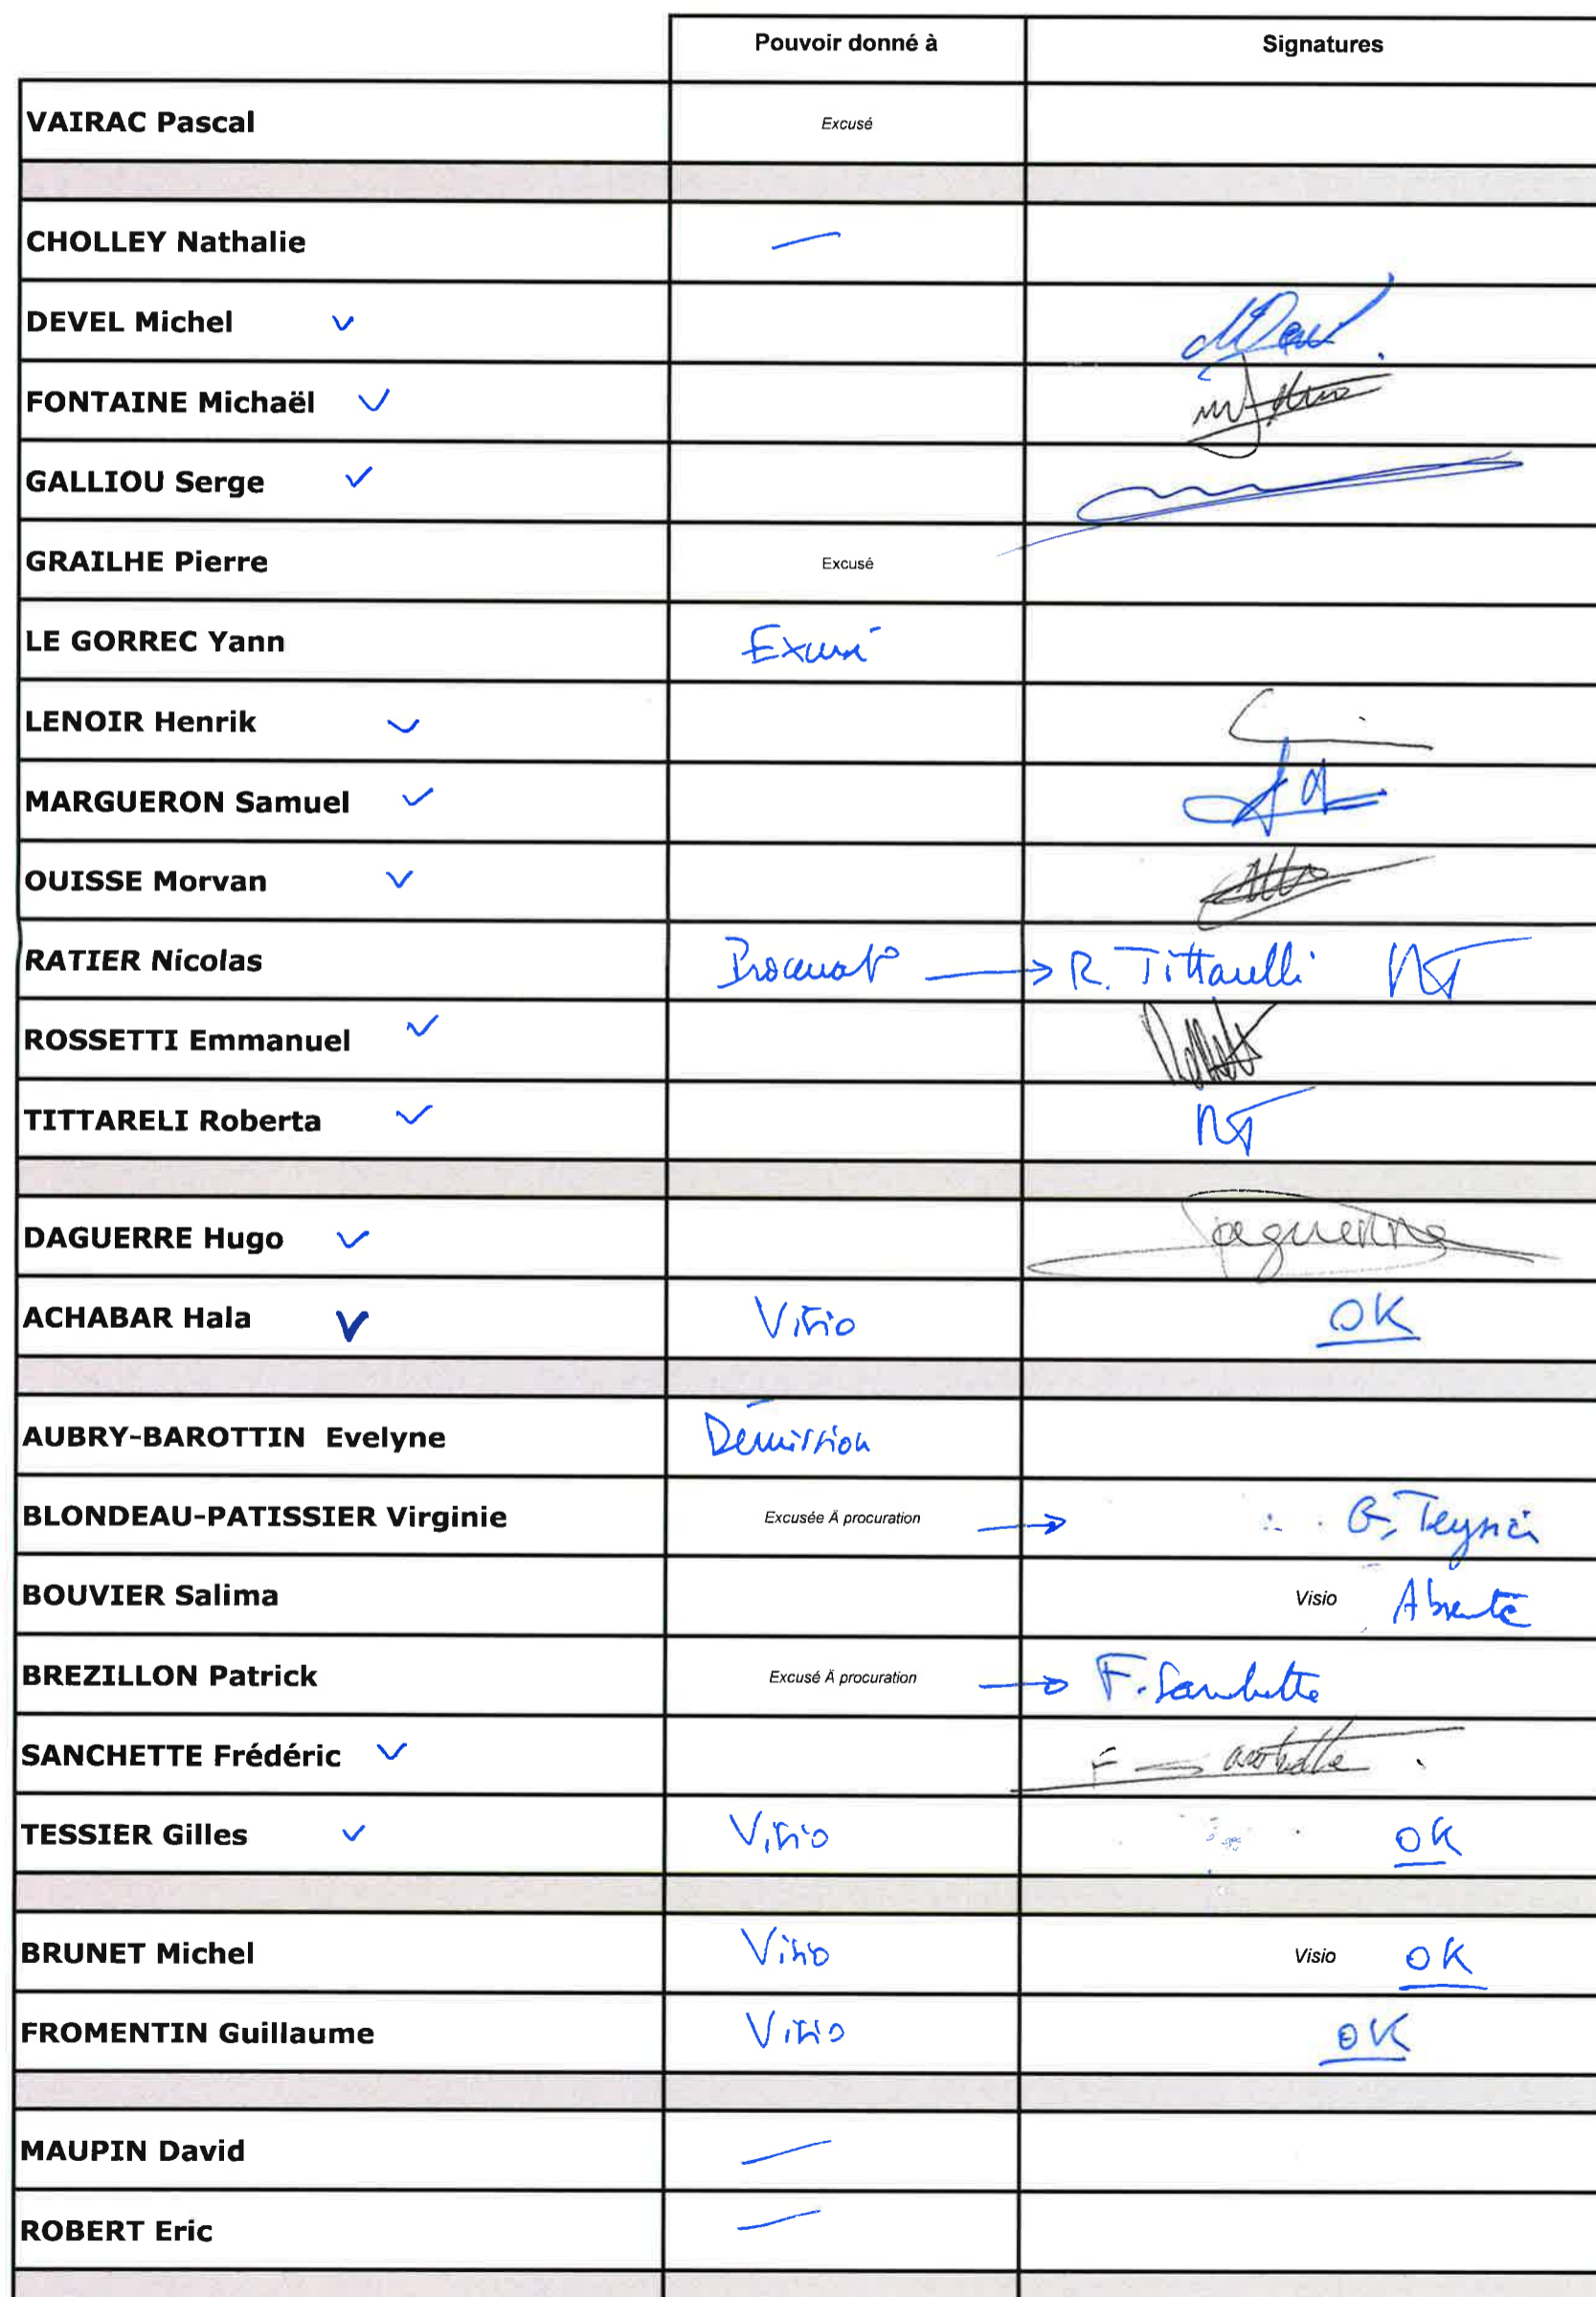 Pouvoir donné à Signatures
VAIRAC Pascal Excusé
CHOLLEY Nathalie —
DEVEL Michel ✓
FONTAINE Michaël ✓
GALLIOU Serge ✓
GRAILHE Pierre Excusé
LE GORREC Yann Excusé
LENOIR Henrik ✓
MARGUERON Samuel ✓
OUISSE Morvan ✓
RATIER Nicolas Procuratº → R. Tittarelli
ROSSETTI Emmanuel ✓
TITTARELI Roberta ✓
DAGUERRE Hugo ✓ Daguerre
ACHABAR Hala ✓ Visio OK
AUBRY-BAROTTIN Evelyne Démission
BLONDEAU-PATISSIER Virginie Excusée Ä procuration → G.
BOUVIER Salima Visio Absente
BREZILLON Patrick Excusé Ä procuration → F. Sanchette
SANCHETTE Frédéric ✓ F Sanchette
TESSIER Gilles ✓ Visio OK
BRUNET Michel Visio Visio OK
FROMENTIN Guillaume Visio OK
MAUPIN David —
ROBERT Eric —